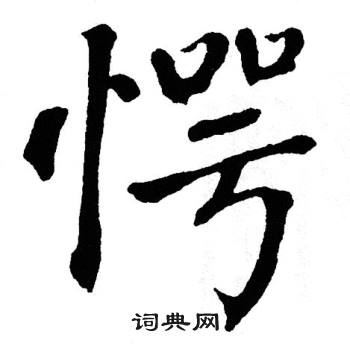 愕
词典网